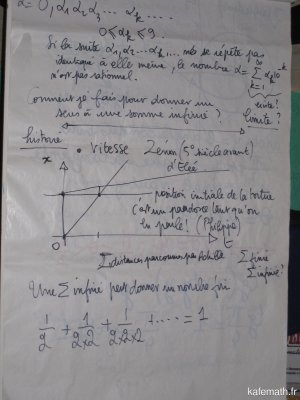 α = 0, α1 α2 α3 ... αk ....
0 ≤ αk ≤ 9.
Si la suite α1, α2 ... αk, ... ne se répète pas
identique à elle même, le nombre α = ∑ αk 10^-k
k=1
n'est pas rationnel.
suite?
limite?
Comment je fais pour donner un
sens à une somme infinie?
histoire
x
• vitesse Zénon (5° siècle avant)
d'Elée
position initiale de la tortue
c'est un paradoxe tant qu'on
en parle! (Philippe)
0
t
∑ distances parcourues par Achille
∑ finie
∑ infinie?
Une ∑ infinie peut donner un nombre fini
1/2 + 1/2×2 + 1/2×2×2 + .... = 1
kafemath.fr